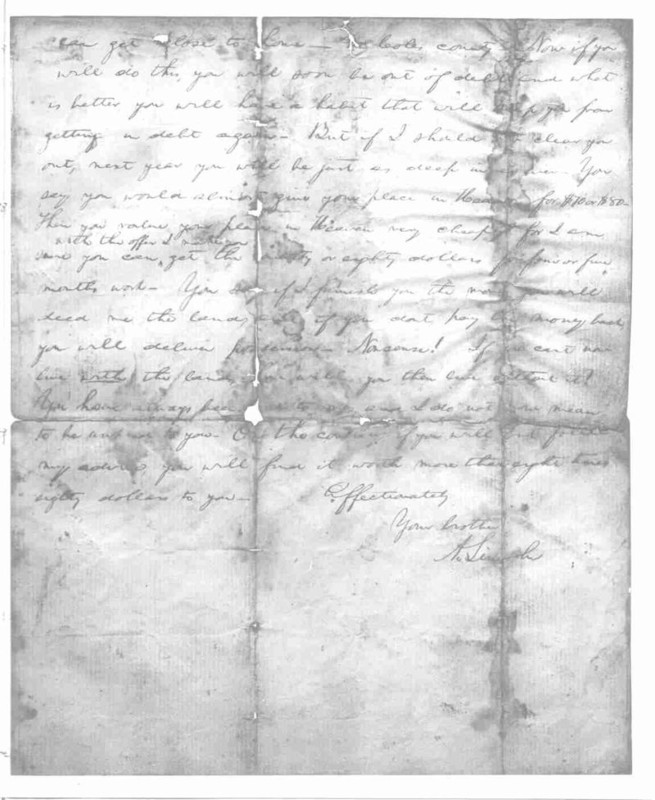 can get close to home — in Coles county. Now if you
will do this, you will soon be out of debt, and what
is better you will have a habit that will keep you from
getting in debt again — But if I should clear you
out, next year you will be just as deep in as ever. You
say you would almost give your place in Heaven for $70 or $80.
Then you value your place in Heaven very cheaply for I am
with the offer I make you
sure you can get the seventy or eighty dollars for four or five
months work — You say if I furnish you the money you will
deed me the land, and if you dont pay the money back
you will deliver possession — Nonsense! If you cant now
live with the land, how will you then live without it?
You have always been to me, and I do not now mean
to be unkind to you — On the contrary, if you will but follow
my advice, you will find it worth more than eight times
eighty dollars to you —
Affectionately
Your brother
A. Lincoln